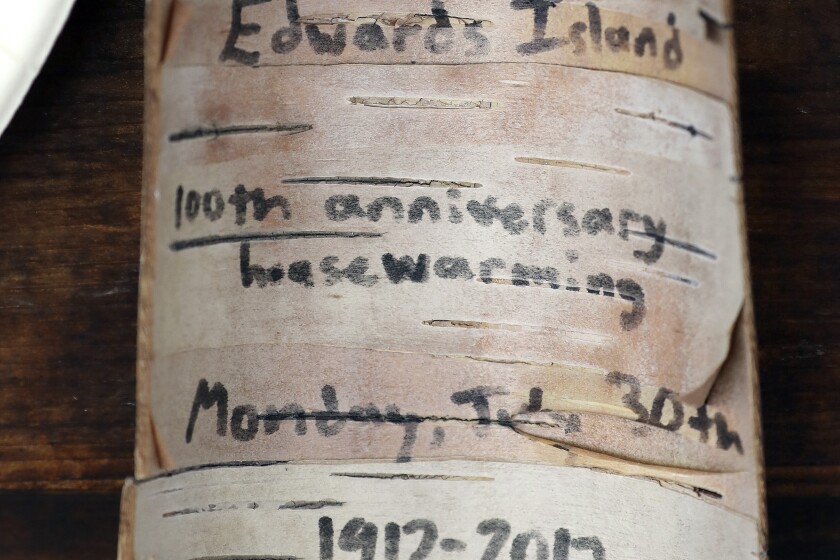 Edwards Island
100th anniversary
housewarming
Monday, July 30th
1912-2012